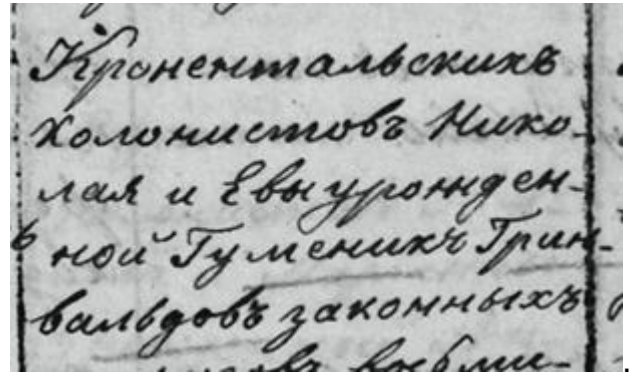 Кронентальскихъ
Колонистовъ Нико-
лая и Евы урожден-
ной Гуменикъ Грин-
вальдовъ законныхъ